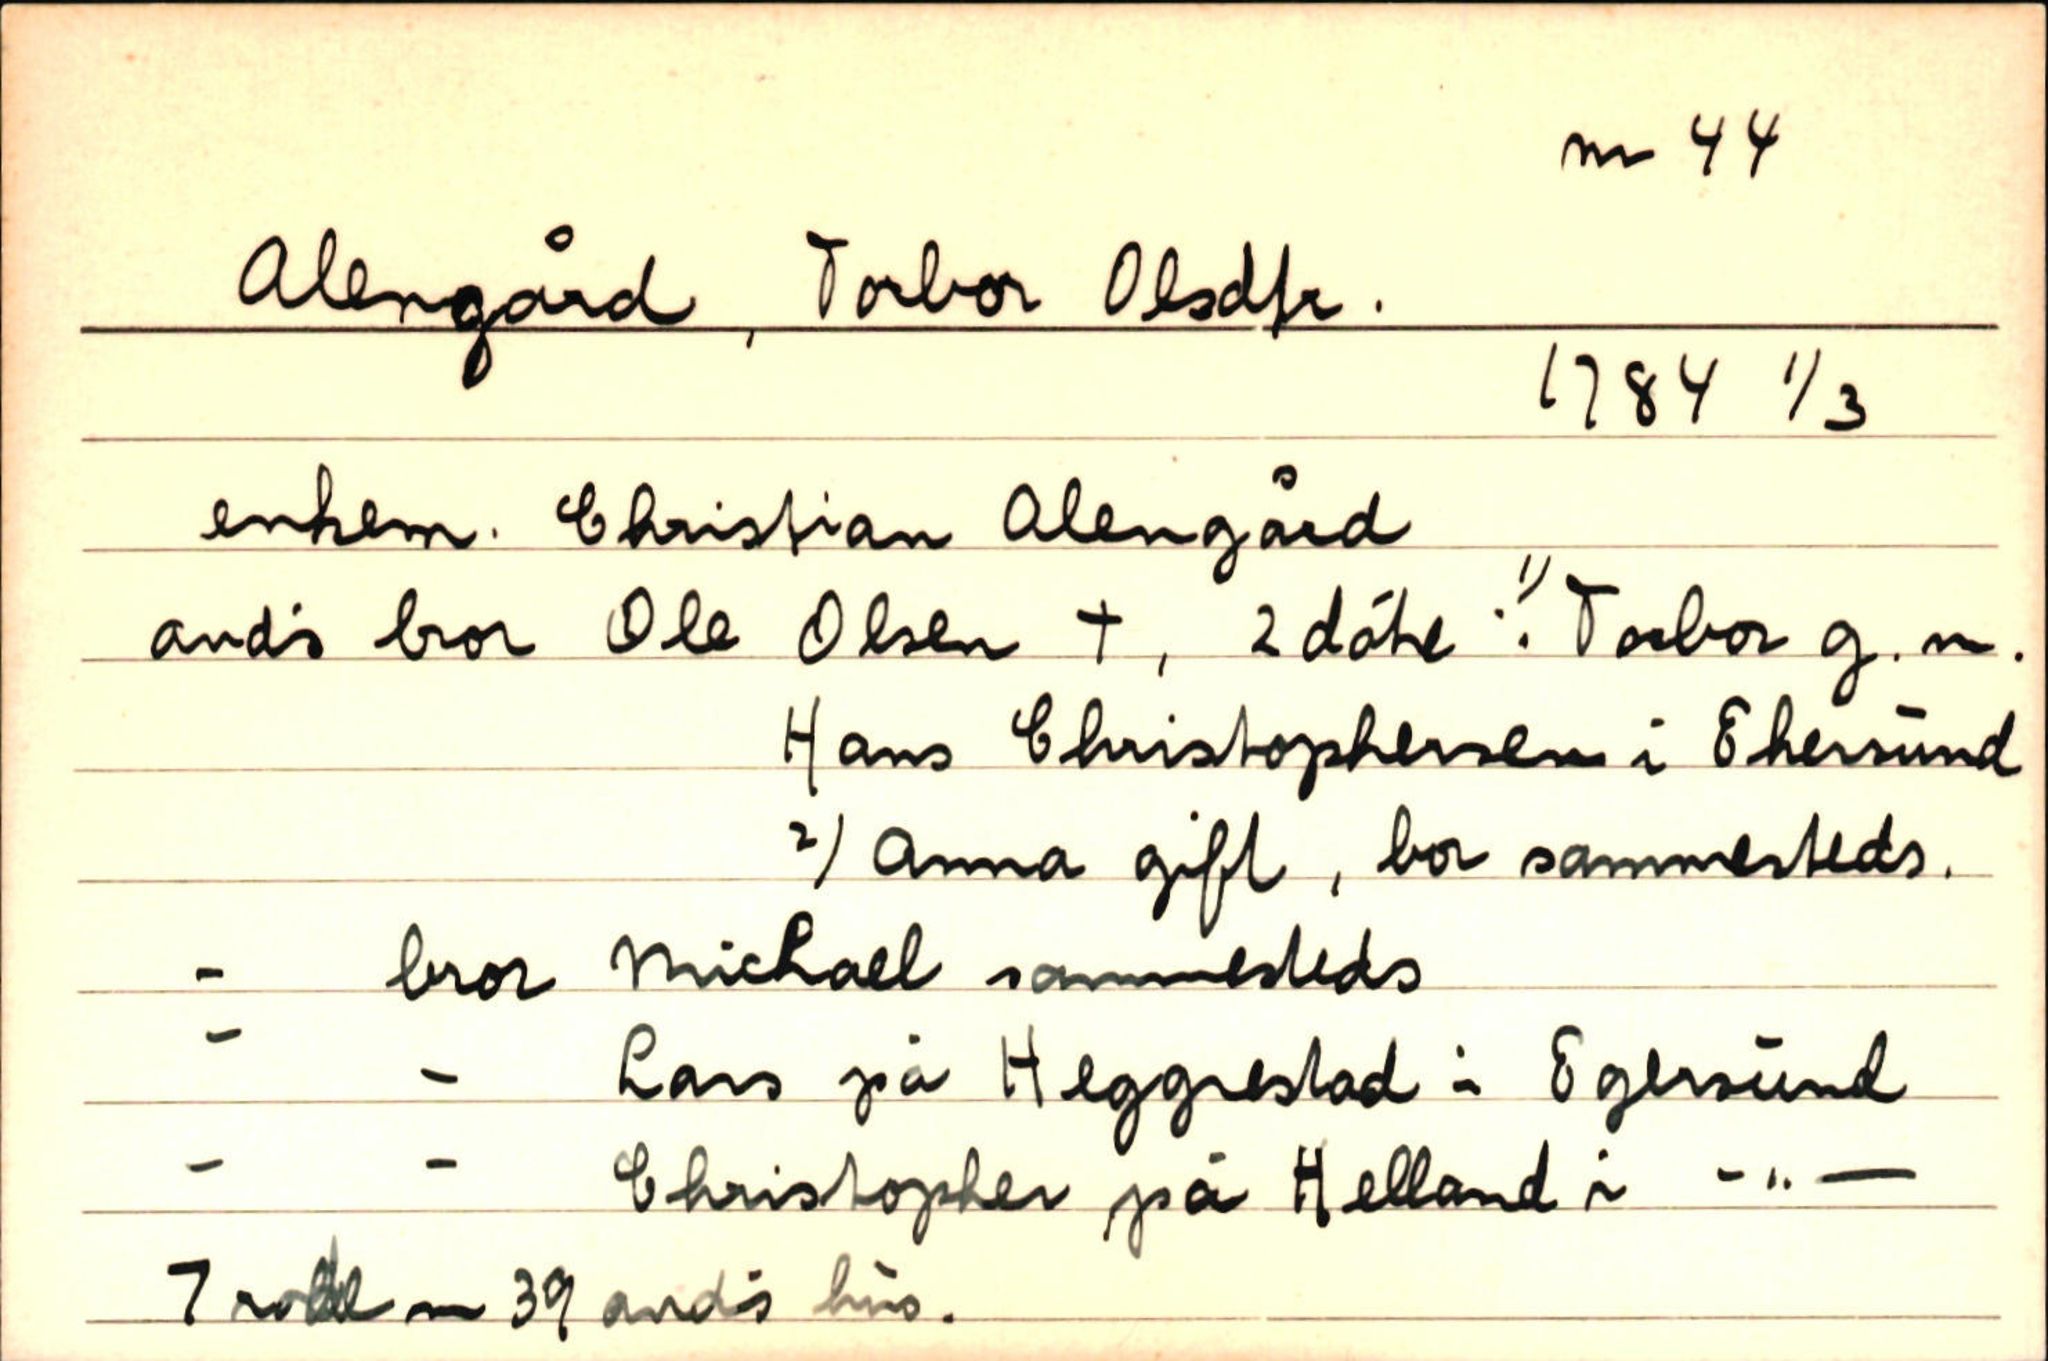 nr 44
Alengård, Torbor Olsdtr.
1784 1/3
enkem. Christian Alengård
avd's bror Ole Olsen +, 2 døtre: 1) Torbor g. m.
Hans Christophersen i Ekersund
2) Anna gift, bor sammesteds.
- bror Michael sammesteds
- - Lars på Heggrestad i Egersund
- - Christopher på Helland i -"-
7 rode nr 39 avd's hus.